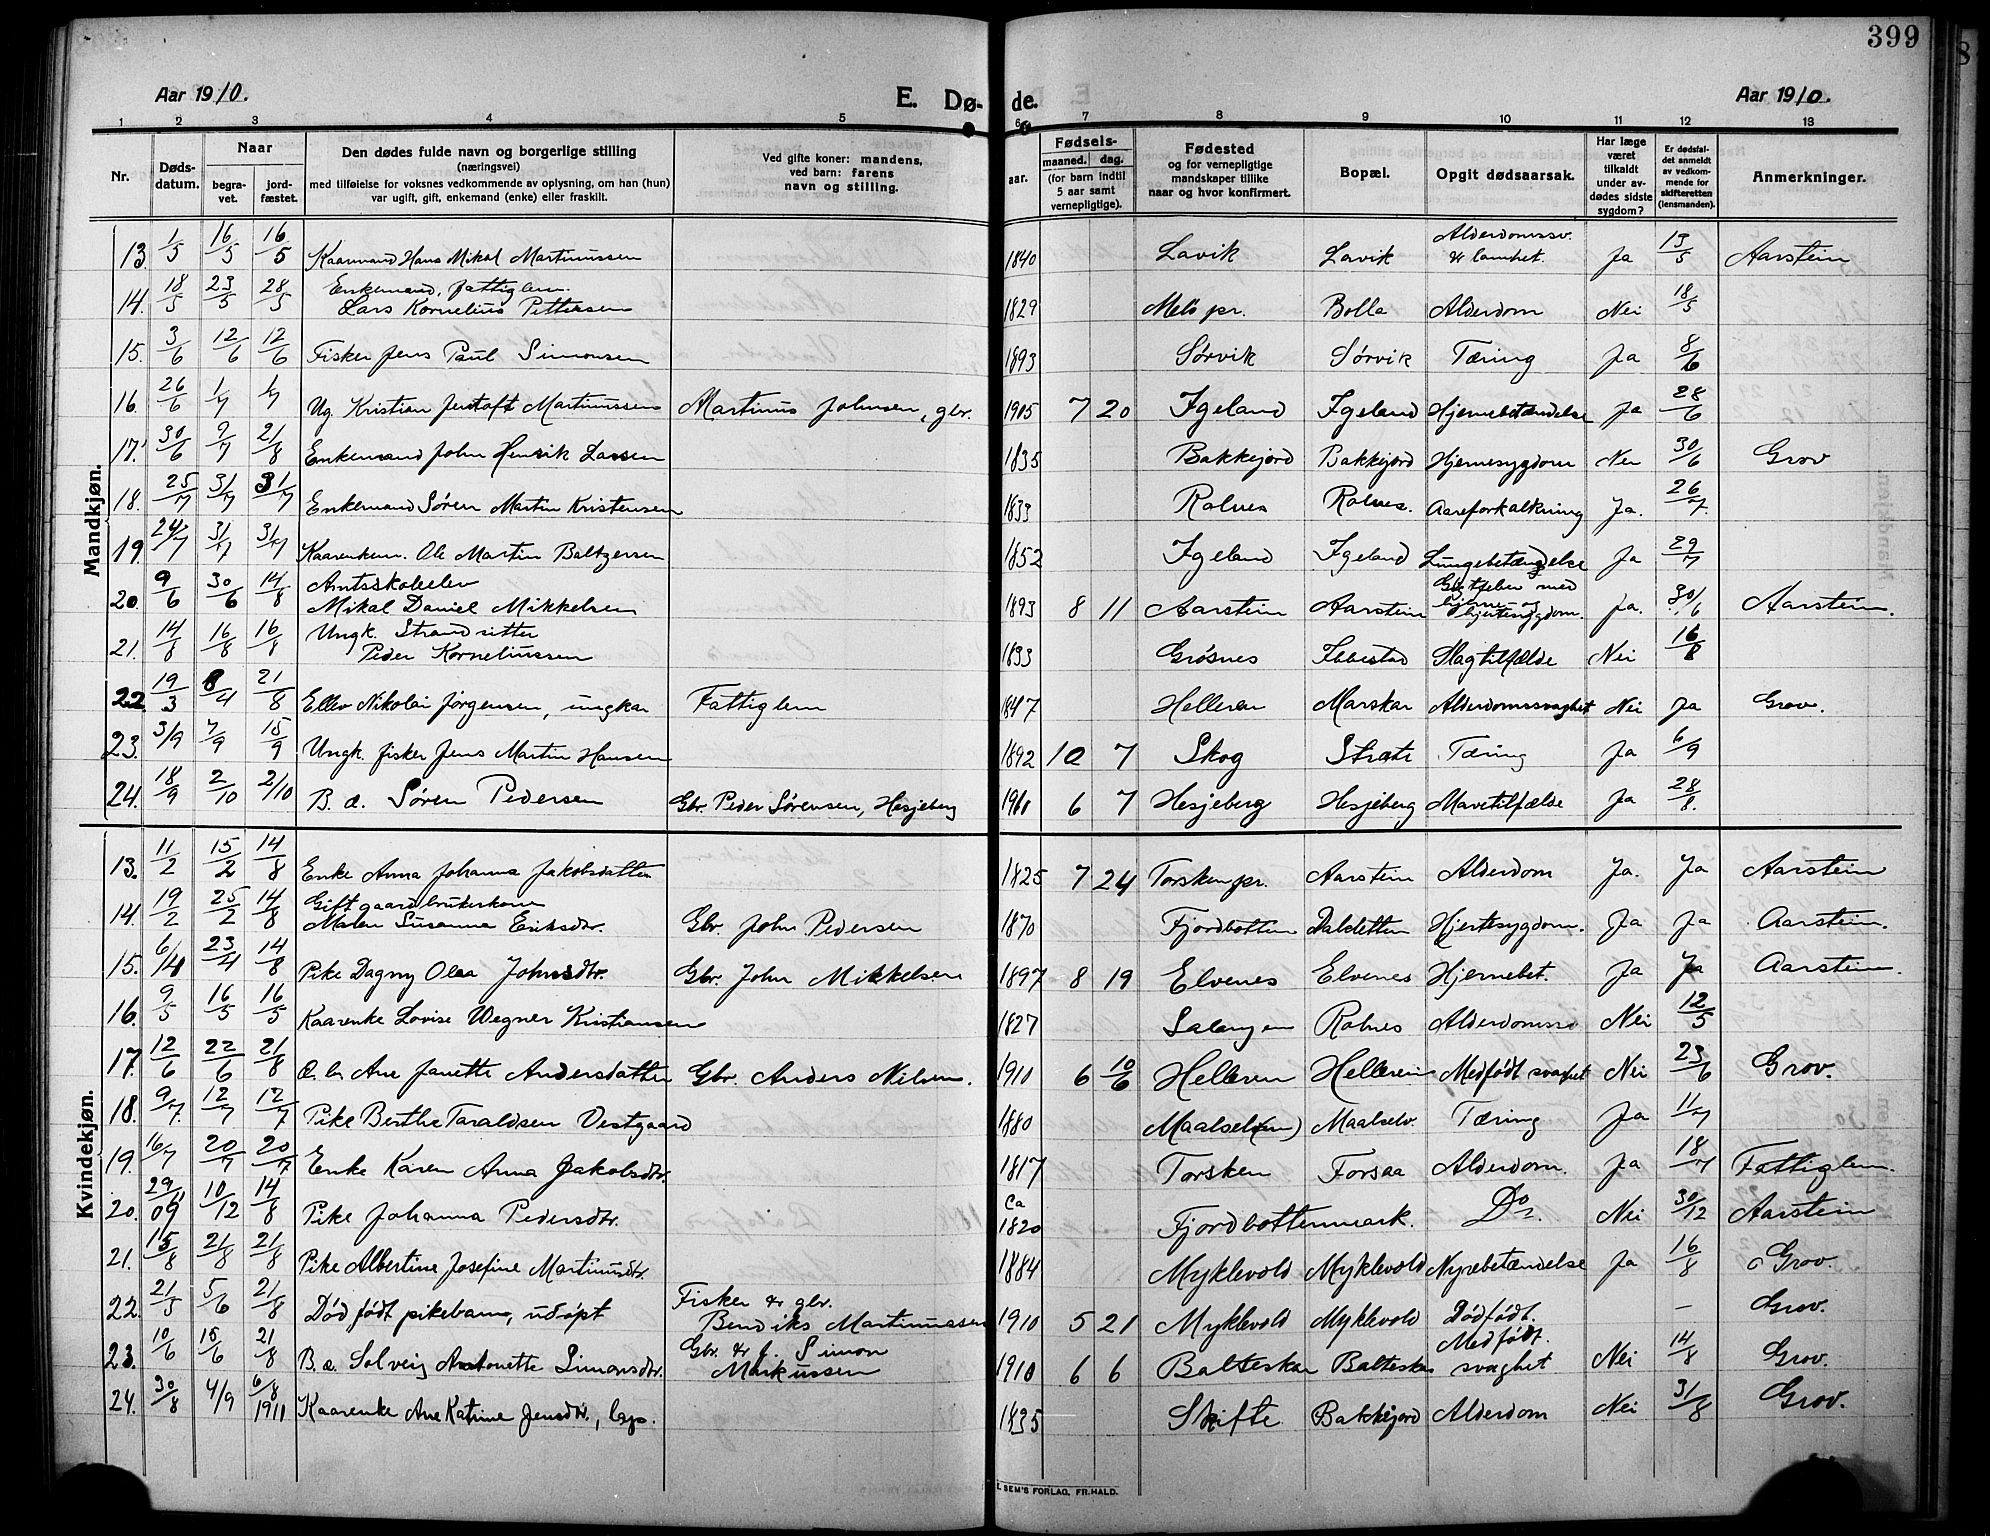 399
Aar 1910. E. Dø- de. Aar 1910.
1 2 3 4 5 6 7 8 9 10 11 12 13
Nr. Døds-datum. Naar begra-vet. jord-fæstet. Den dødes fulde navn og borgerlige stilling (næringsvei) med tilføielse for voksnes vedkommende av oplysning, om han (hun) var ugift, gift, enkemand (enke) eller fraskilt. Ved gifte koner: mandens, ved barn: farens navn og stilling. aar. Fødsels- maaned. dag. (for barn indtil 5 aar samt vernepligtige). Fødested og for vernepligtige mandskaper tillike naar og hvor konfirmert. Bopæl. Opgit dødsaarsak. Har læge været tilkaldt under av-dødes sidste sygdom? Er dødsfal-det anmeldt av vedkom-mende for skifteretten (lensmanden). Anmerkninger.
Mandkjøn.
13. 1/5 16/5 16/5 Kaarmand Hans Mikal Martinussen 1840 Lavik Lavik Alderdomssv. & lamhet. Ja 13/5 Aarstein
14. 18/5 23/5 28/5 Enkemand, fattiglem. Lars Kornelius Pettersen 1829 Melø pr. Bolla Alderdom Nei 18/5
15. 3/6 12/6 12/6 Fisker Jens Paul Simonsen 1893 Sørvik Sørvik Tæring Ja 8/6
16. 26/6 1/7 1/7 Ug. Kristian Jentoft Martinussen Martinus Johnsen, gbr. 1905 7 20 Igeland Igeland Hjernebetændelse Ja 28/6
17. 30/6 9/7 21/8 Enkemand John Henrik Larsen 1835 Bakkejord Bakkejord Hjernesygdom Nei 30/6 Grov
18. 25/7 31/7 31/7 Enkemand Søren Martin Kristensen 1833 Rolnes Rolnes. Aareforkalkning Ja. 26/7.
19. 24/7 31/7 31/7 Kaarenkem. Ole Martin Baltzersen 1852 Igeland Igeland Lungebetændelse Ja 29/7
20. 9/6 30/6 14/8 Amtsskoleelev Mikal Daniel Mikkelsen 1893 8 11 Aarstein Aarstein med hjerne og hjertesygdom. Ja. 30/6 Aarstein.
21. 14/8 16/8 16/8 Ungk. Strandsitter Peder Korneliussen 1833 Grøsnes Ibbestad Slagtilfælde Nei 16/8
22. 19/3 8/4 21/8 Ellev Nikolai Jørgensen, ungkar Fattiglem 1847 Helleren Marskar Alderdomssvaghet Nei Ja Grov.
23. 3/9 7/9 15/9 Ungk. fisker Jens Martin Hansen 1892 10 7 Skog Tæring Ja 6/9
24. 18/9 2/10 2/10 B. æ. Søren Pedersen Gbr. Peder Sørensen, Hesjeberg 1910 6 7 Hesjeberg Hesjeberg Mavetilfælde Ja 28/8.
Kvindekjøn.
13. 11/2 15/2 14/8 Enke Anna Johanna Jakobsdatter 1825 7 24 Torsken pr. Aarstein Alderdom Ja. Ja Aarstein
14. 19/2 25/2 14/8 Gift gaardbrukerkone Malen Susanna Eriksdtr. Gbr. John Pedersen 1870 Fjordbotten Hjertesygdom. Ja Ja Aarstein.
15. 6/4 23/4 14/8 Pike Dagny Olea Johnsdtr. Gbr. John Mikkelsen 1897 8 19 Elvenes Elvenes Hjernebet. Ja Ja Aarstein.
16. 9/5 16/5 16/5 Kaarenke Lovise Wegner Kristiansen 1827 Salangen Rolnes Alderdomssv Nei 12/5
17. 12/6 22/6 21/8 Æ. b. Ane Janette Andersdatter Gbr. Anders Nilsen. 1910 6 10/6 Helleren Helleren Medfødt svaghet Nei 23/6 Grov.
18. 9/7. 12/7 12/7 Pike Berthe Taraldsen Vestgaard 1880 Maalselv(en) Maalselv. Tæring Ja 11/7
19. 16/7 20/7 20/7 Enke Karen Anna Jakobsdtr. 1817 Torsken Forsaa Alderdom. Ja 18/7 Fattiglem.
20. 29/11 09 10/12 14/8 Pike Johanna Pedersdtr. Ca 1820 Fjordbottenmark. Do Nei 30/12 Aarstein
21. 15/8 21/8 21/8 Pike Albertine Josefine Martinusdtr. 1884 Myklevold Myklevold Nyrebetændelse Ja 16/8 Grov.
22. 21/5 5/6 21/8 Dødfødt pikebarn, udøpt Fisker & gbr. Bendiks Martinussen 1910 5 21 Myklevold Myklevold Dødfødt. – Grov.
23. 10/6 15/6 21/8 B. æ. Solveig Antonette Simonsdtr. Gbr. & f. Simon Markussen 1910 6 6 Balteskar Balteskar Medfødt. svaghet Nei 14/8 Grov.
24. 30/8 4/9 6/8 1911 Kaarenke Ane Katrine Jensdtr., 1835 Skifte Bakkejord Alderdom Nei 31/8 Grov.
SEM'S FORLAG, FR.HALD.